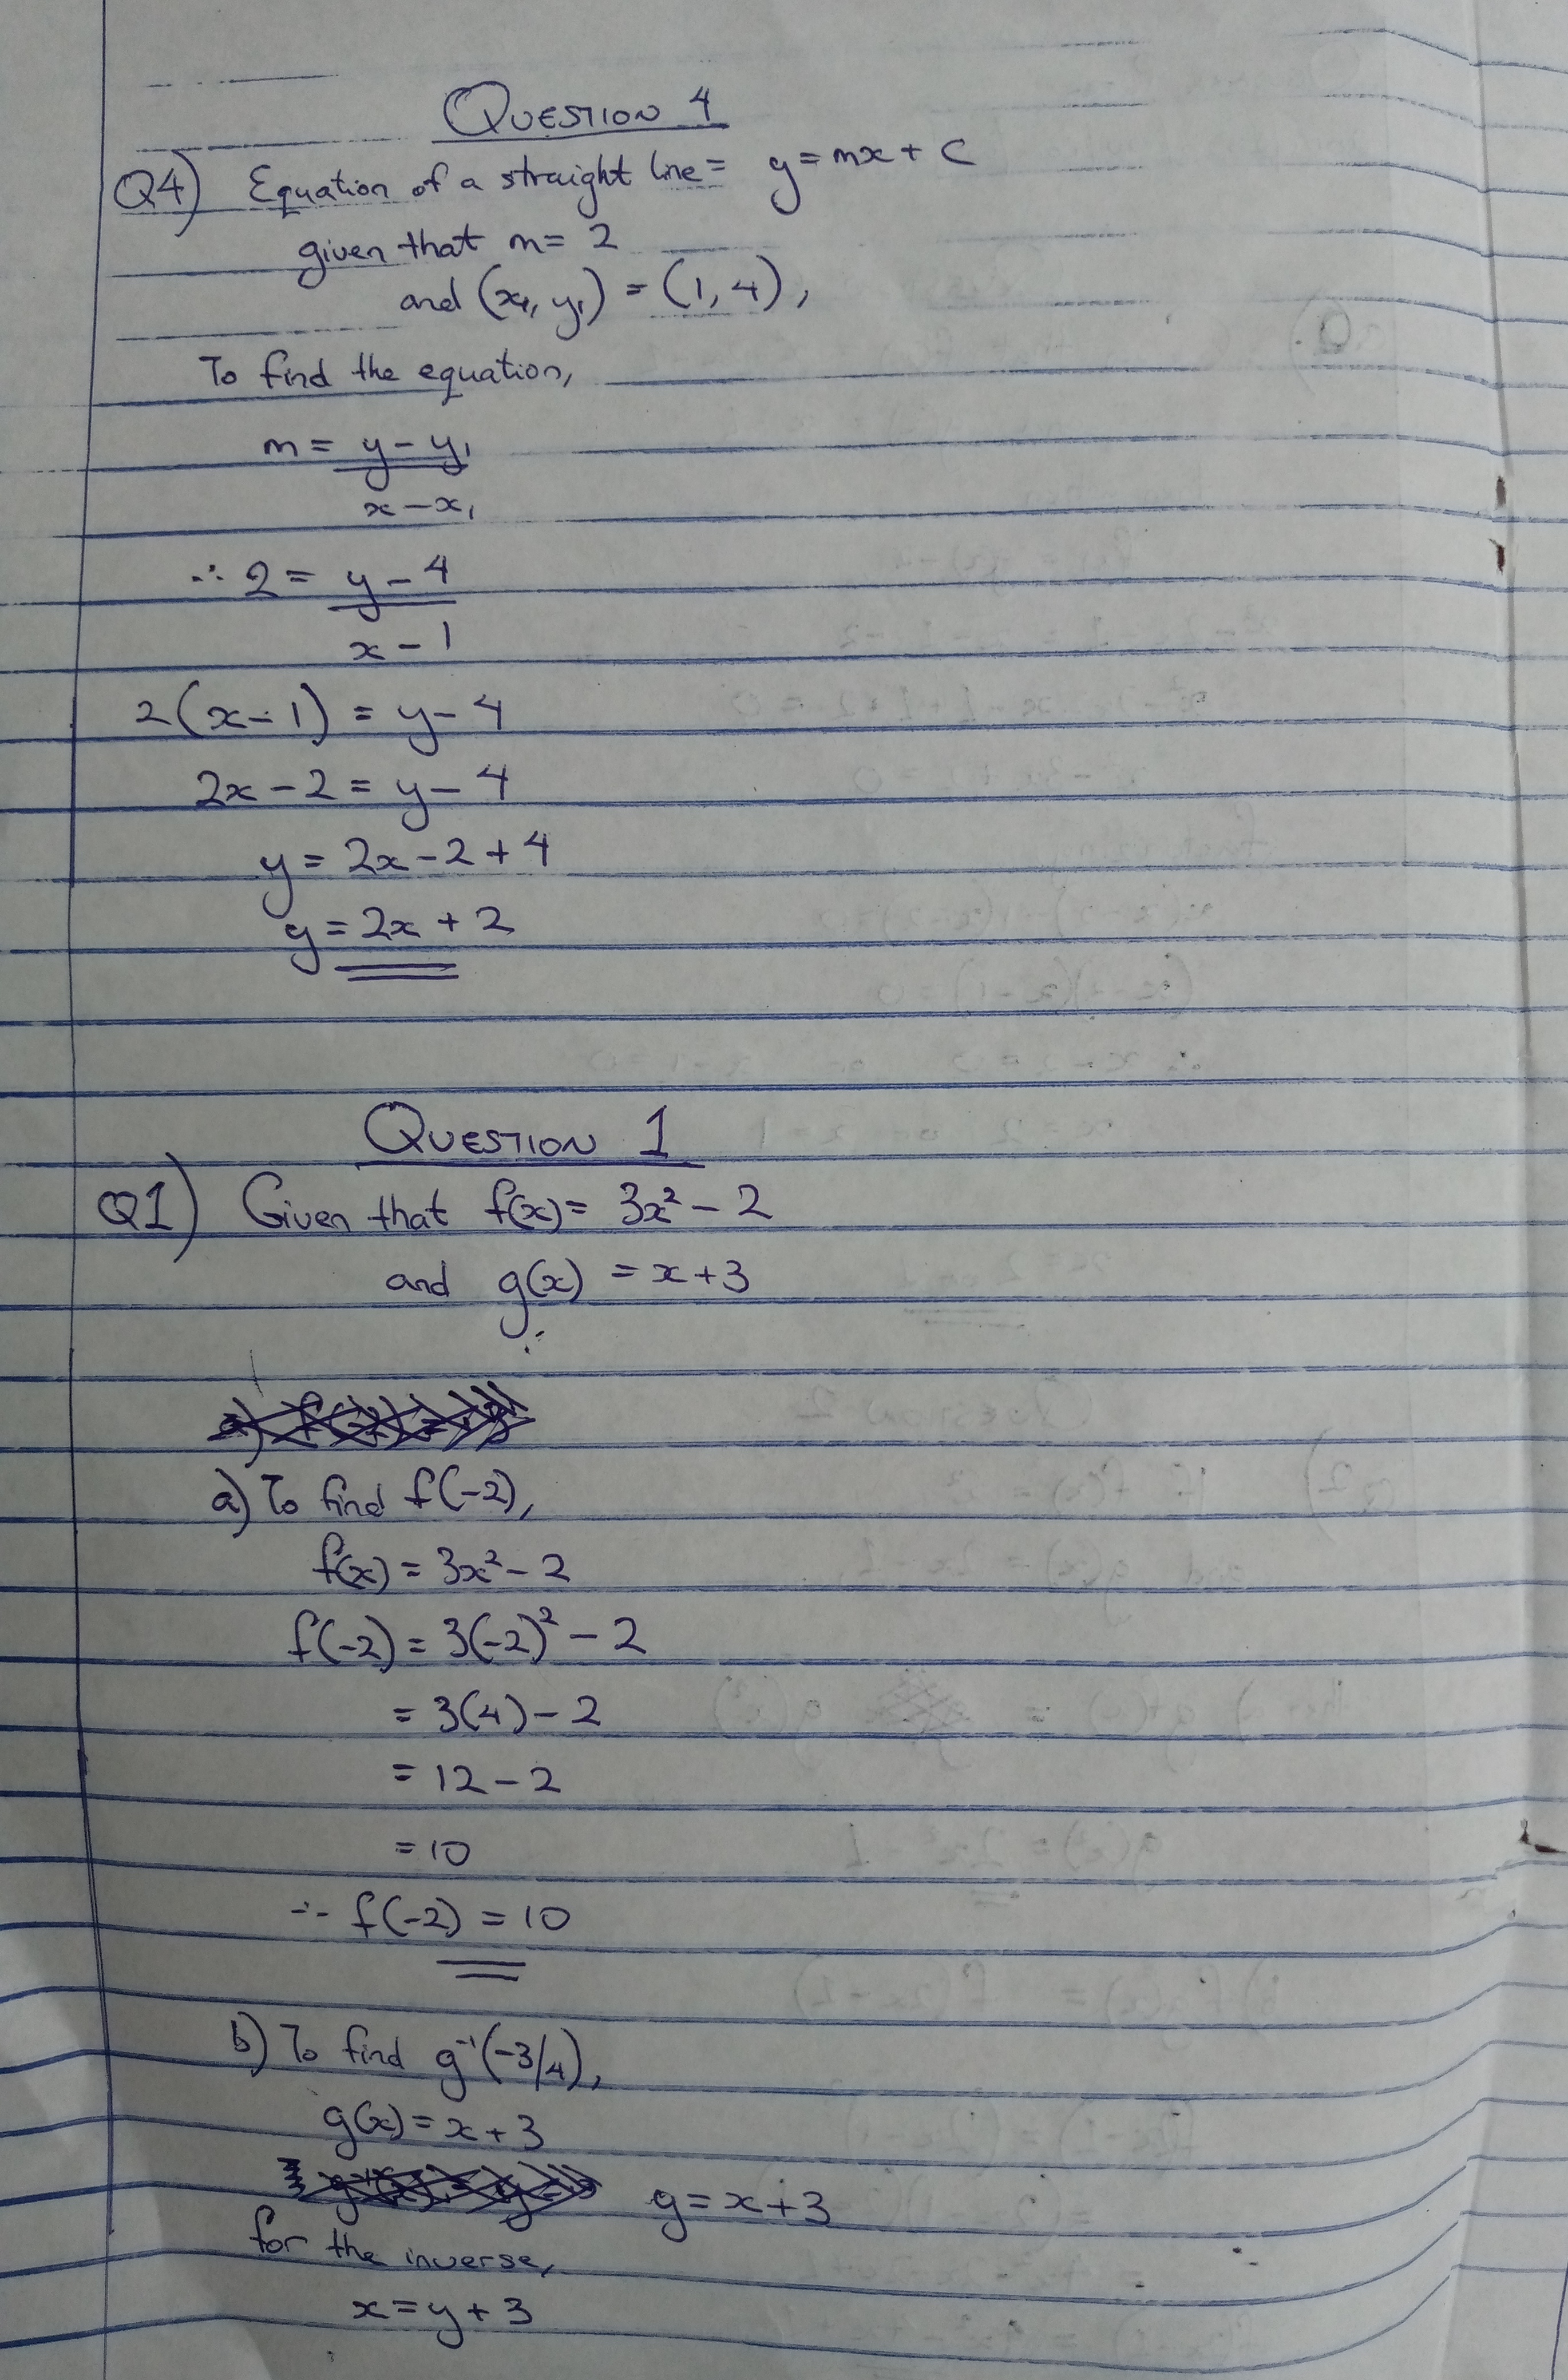 QUESTION 4
Q4) Equation of a straight line = y = mx + c
given that m = 2
and (x₁, y₁) = (1, 4),
To find the equation,
m = y - y₁
x - x₁
∴ 2 = y - 4
x - 1
2(x - 1) = y - 4
2x - 2 = y - 4
y = 2x - 2 + 4
y = 2x + 2
QUESTION 1
Q1) Given that f(x) = 3x² - 2
and g(x) = x + 3
a) To find f(-2),
f(x) = 3x² - 2
f(-2) = 3(-2)² - 2
= 3(4) - 2
= 12 - 2
= 10
∴ f(-2) = 10
b) To find g⁻¹(-3/4),
g(x) = x + 3
y = x + 3
for the inverse,
x = y + 3